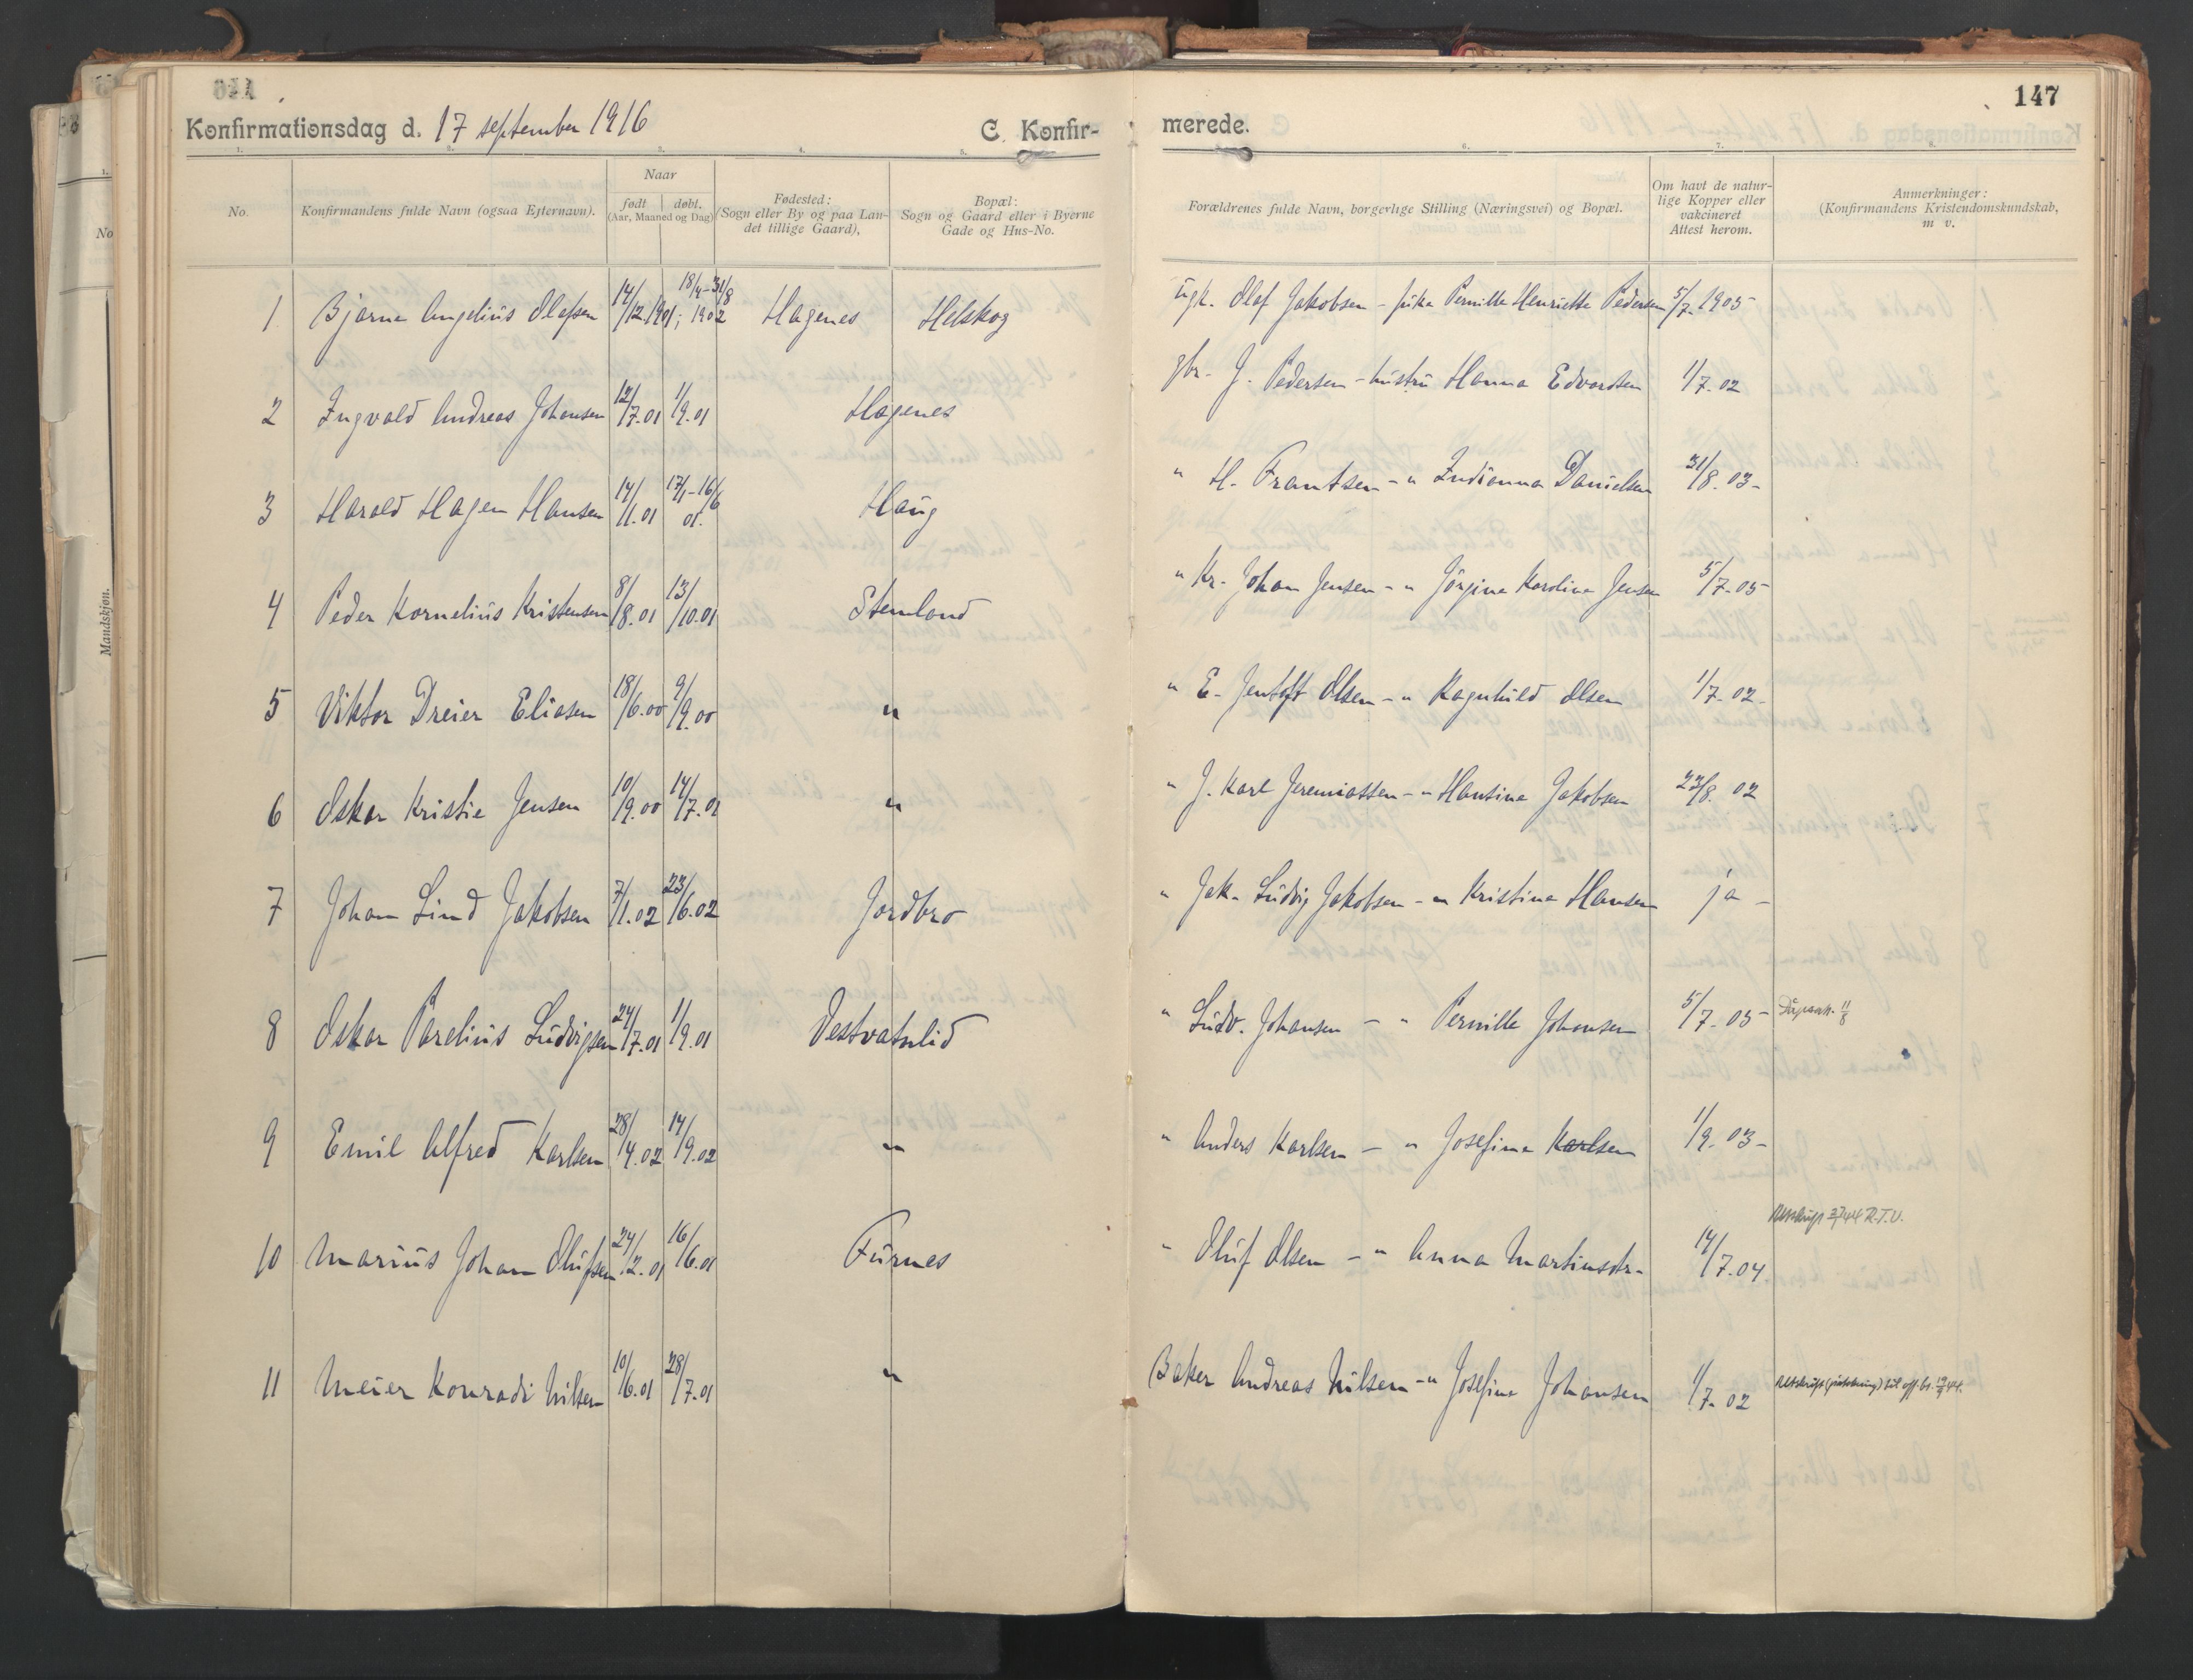 147
Konfirmationsdag d. 17 september 1916 C. Konfir- merede.
1. 2. 3. 4. 5. 6. 7. 8.
No. Konfirmandens fulde Navn (ogsaa Efternavn). Naar født døbt. (Aar, Maaned og Dag)
Fødested: (Sogn eller By og paa Lan- det tillige Gaard),
Bopæl: Sogn og Gaard eller i Byerne Gade og Hus-No.
Forældrenes fulde Navn, borgerlige Stilling (Næringsvei) og Bopæl.
Om havt de natur- lige Kopper eller vakcineret Attest herom.
Anmerkninger: (Konfirmandens Kristendomskundskab, m v.
1 Bjarne Angeliŭs Olafsen 14/12.1901; 18/4-31/8 1902 Hagenes Helskog Ŭgk. Olaf Jakobsen - pike Pernille Henriette Pedersen 5/7.1905
2 Ingvald Andreas Johansen 12/7.01 1/9.01 Hagenes gbr. J. Pedersen - hŭstrŭ Hanna Edvardsen 1/7.02
3 Harald Hagen Hansen 14/1.01 17/1-16/6 01. Haŭg " H. Frantsen - " Indianna Danielsen 31/8.03-
4 Peder Korneliŭs Kristensen 8/8.01 13/10.01 Stemland " Kr. Johan Jensen - " Jørgine Karoline Jensen 5/7-05
5 Viktor Dreier Eliasen 18/6.00 9/9.00 " " E. Jentoft Olsen - " Ragnhild Olsen 1/7-02-
6 Oskar Kristie Jensen 10/9.00 14/7.01 " " J. Karl Jeremiassen - " Hansine Jakobsen 23/8.02
7 Johan Lind Jakobsen 7/1.02 23/6.02 Jordbro " Jak. Lŭdvig Jakobsen - " Kristine Hansen ja -
8 Oskar Pareliŭs Lŭdvigsen 24/7.01 1/9.01 Vestvatnlid " Lŭdv. Johansen - " Pernille Johansen 5/7-05- 11/8
9 Emil Alfred Karlsen 28/4.02 14/9.02 " " Anders Karlsen - " Josefine Karlsen 1/9-03-
10 Mariŭs Johan Olŭfsen 24/2.01 16/6.01 Fŭrnes " Olŭf Olsen - " Anna Martinsdtr. 14/7.04 Utskrift 44 R.T.V.
11 Meier Konradi Nilsen 10/6.01 28/7.01 " Baker Andreas Nilsen - " Josefine Johansen 1/7-02 Utskrift til off. br. 44.
No
Mandskjøn.